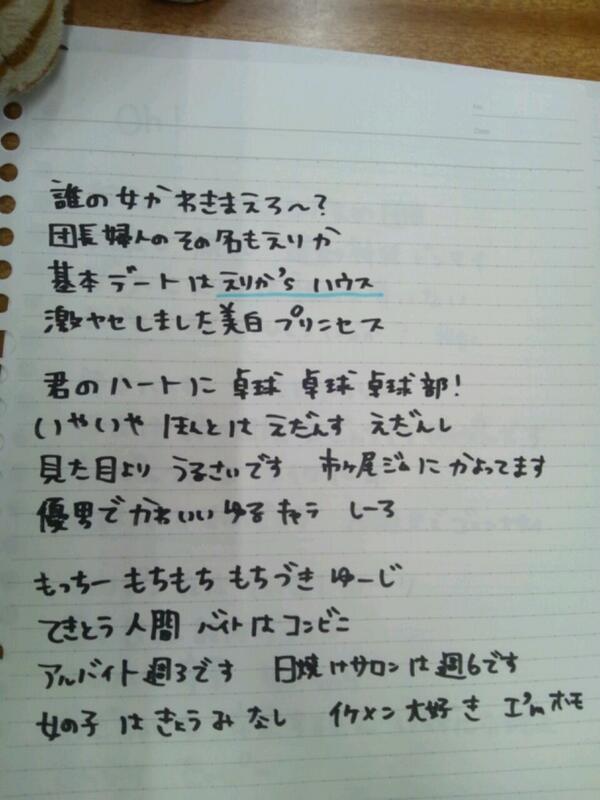 誰の女かわきまえろ〜?
団長婦人のその名もえりか
基本デートはえりか's ハウス
激ヤセしました美白プリンセス
君のハートに 卓球 卓球 卓球部!
いやいや ほんとは えだんす えだんし
見た目より うるさいです 市ヶ尾ジムにかよってます
優男でかわいいゆるキャラ しーろ
もっちー もちもち もちづき ゆーじ
てきとう人間 バイトはコンビニ
アルバイト週3です 日焼けサロンは週6です
女の子はきょうみなし イケメン大好き I'm ホモ